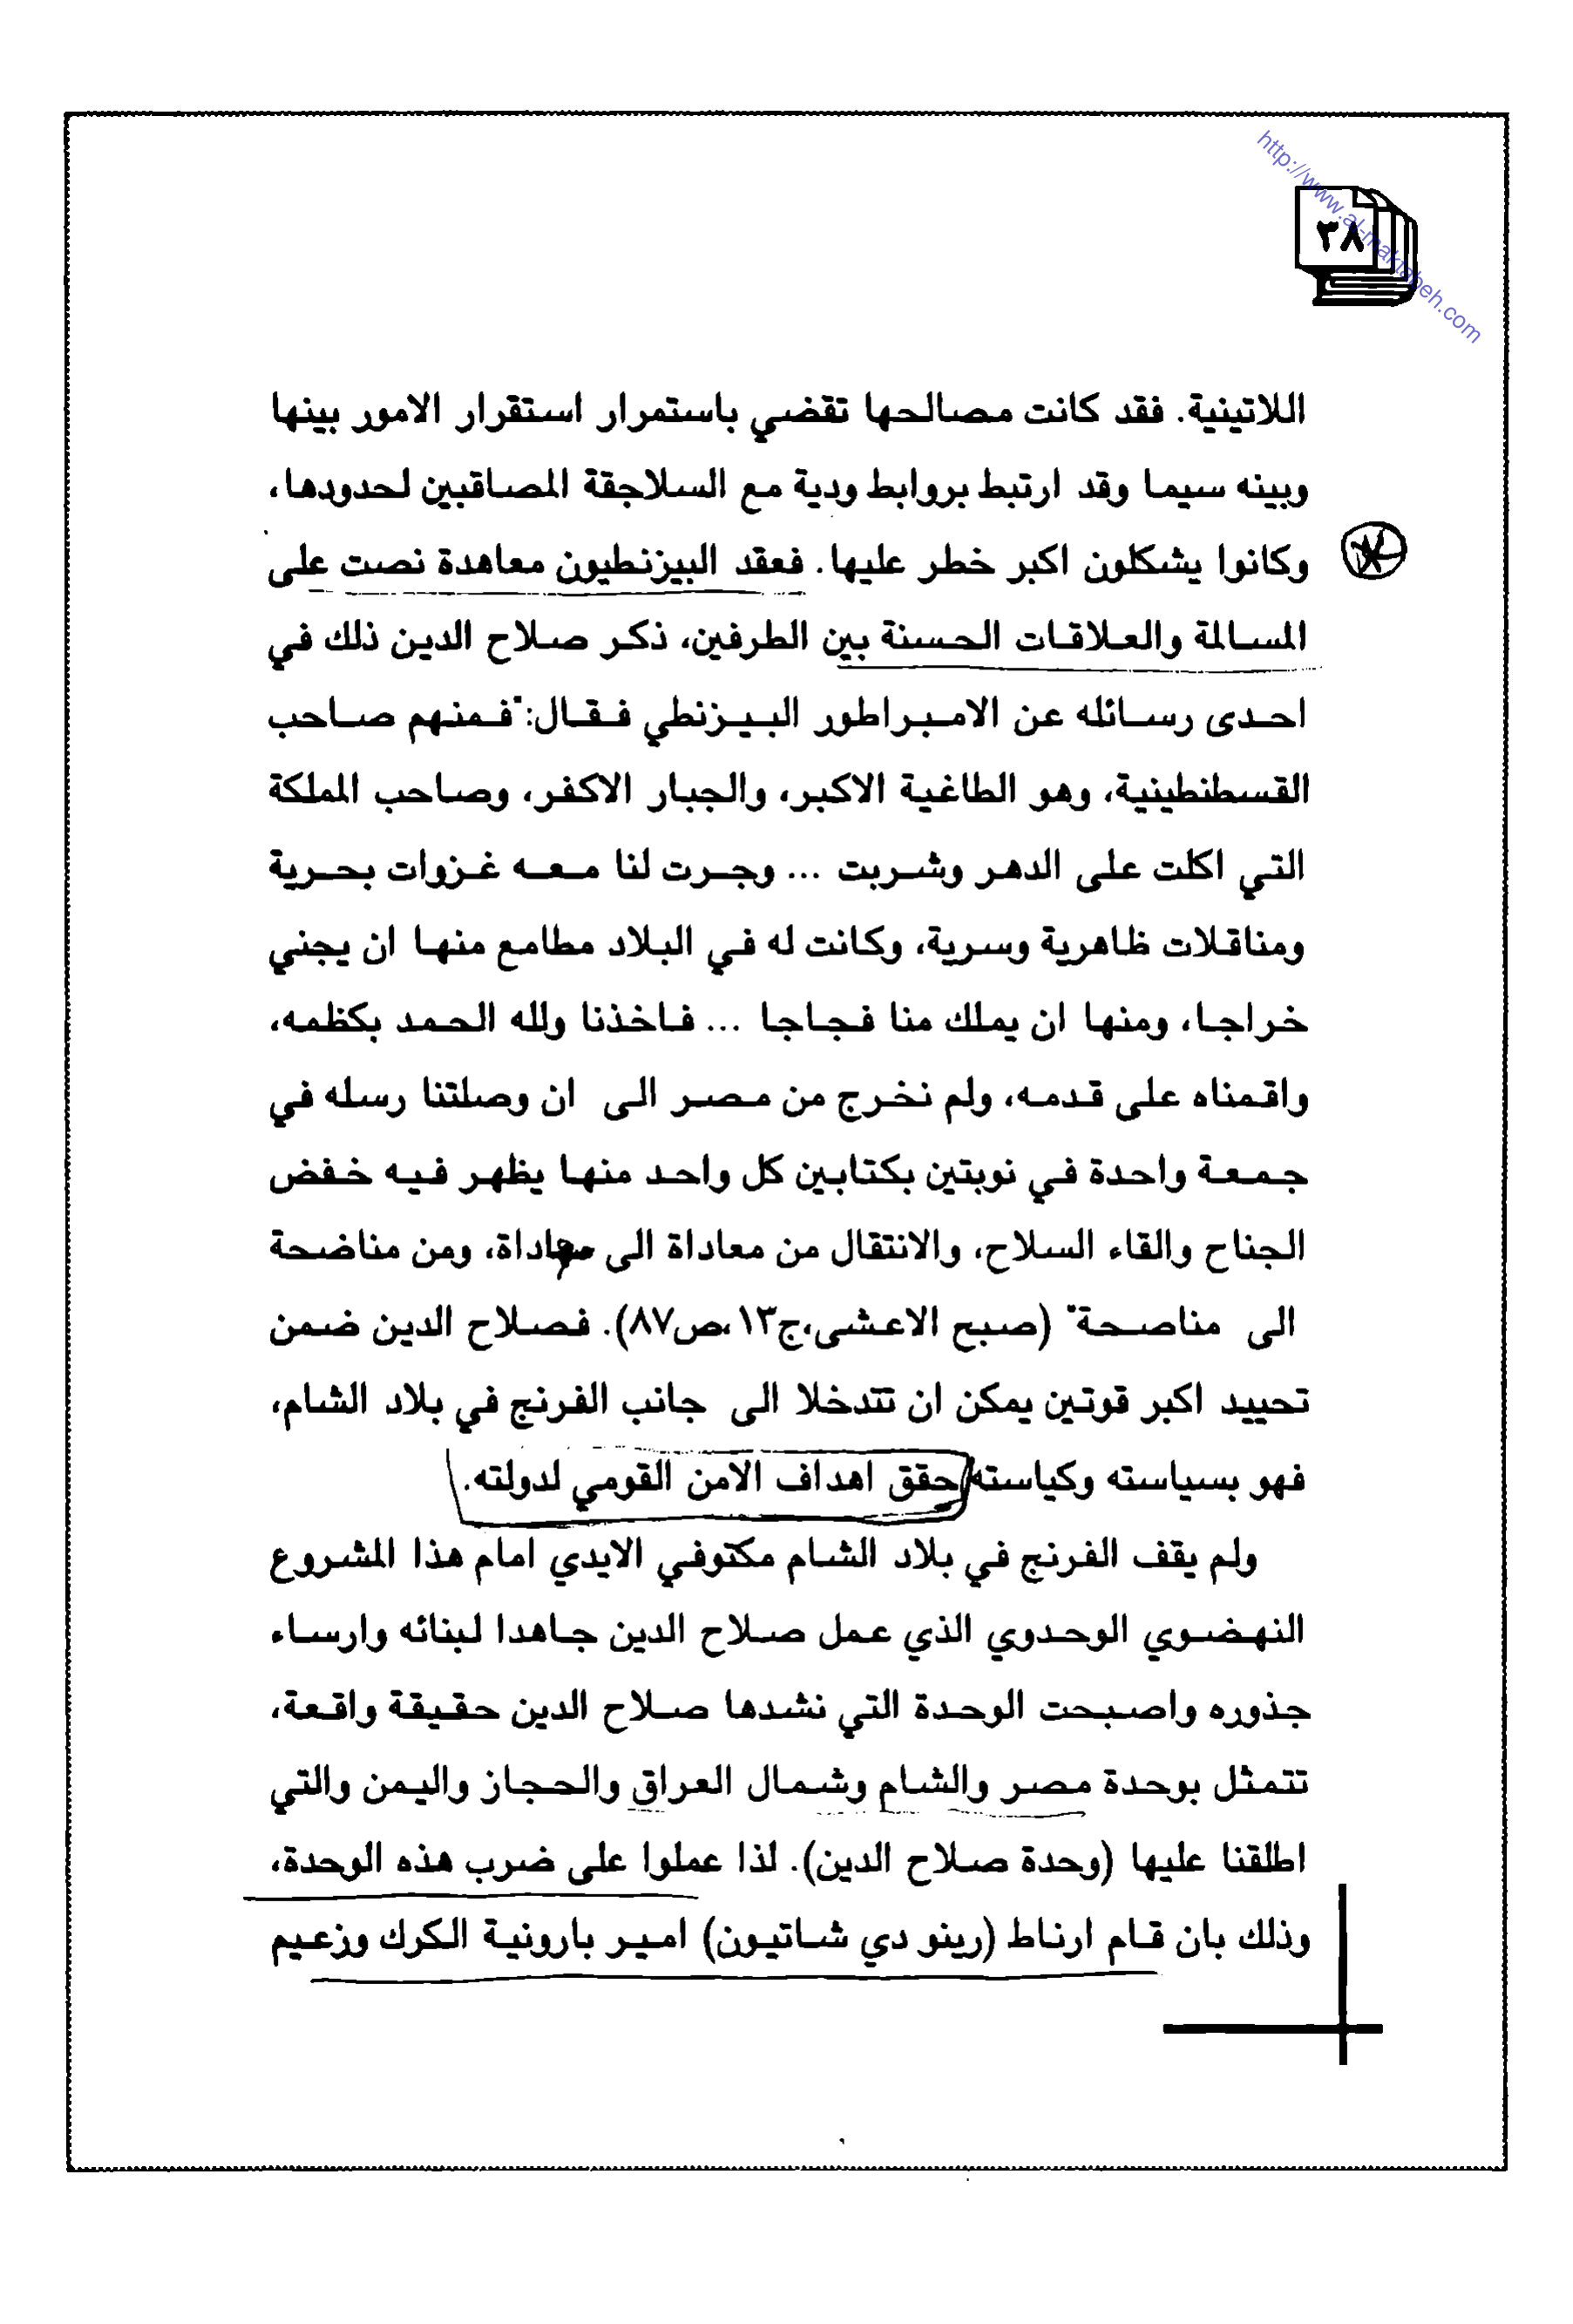 http://www.al-maktabeh.com
٣٨
اللاتينية. فقد كانت مصالحها تقضي باستمرار استقرار الامور بينها
وبينه سيما وقد ارتبط بروابط ودية مع السلاجقة المصاقبين لحدودها،
وكانوا يشكلون اكبر خطر عليها. فعقد البيزنطيون معاهدة نصت على
المسالمة والعلاقات الحسنة بين الطرفين، ذكر صلاح الدين ذلك في
احدى رسائله عن الامبراطور البيزنطي فقال:"فمنهم صاحب
القسطنطينية، وهو الطاغية الاكبر، والجبار الاكفر، وصاحب المملكة
التي اكلت على الدهر وشربت ... وجرت لنا معه غزوات بحرية
ومناقلات ظاهرية وسرية، وكانت له في البلاد مطامع منها ان يجني
خراجا، ومنها ان يملك منا فجاجا ... فاخذنا ولله الحمد بكظمه،
واقمناه على قدمه، ولم نخرج من مصر الى ان وصلتنا رسله في
جمعة واحدة في نوبتين بكتابين كل واحد منها يظهر فيه خفض
الجناح والقاء السلاح، والانتقال من معاداة الى مهاداة، ومن مناضحة
الى مناصحة" (صبح الاعشى،ج١٣،ص٨٧). فصلاح الدين ضمن
تحييد اكبر قوتين يمكن ان تتدخلا الى جانب الفرنج في بلاد الشام،
فهو بسياسته وكياسته حقق اهداف الامن القومي لدولته.
ولم يقف الفرنج في بلاد الشام مكتوفي الايدي امام هذا المشروع
النهضوي الوحدوي الذي عمل صلاح الدين جاهدا لبنائه وارساء
جذوره واصبحت الوحدة التي نشدها صلاح الدين حقيقة واقعة،
تتمثل بوحدة مصر والشام وشمال العراق والحجاز واليمن والتي
اطلقنا عليها (وحدة صلاح الدين). لذا عملوا على ضرب هذه الوحدة،
وذلك بان قام ارناط (رينو دي شاتيون) امير بارونية الكرك وزعيم